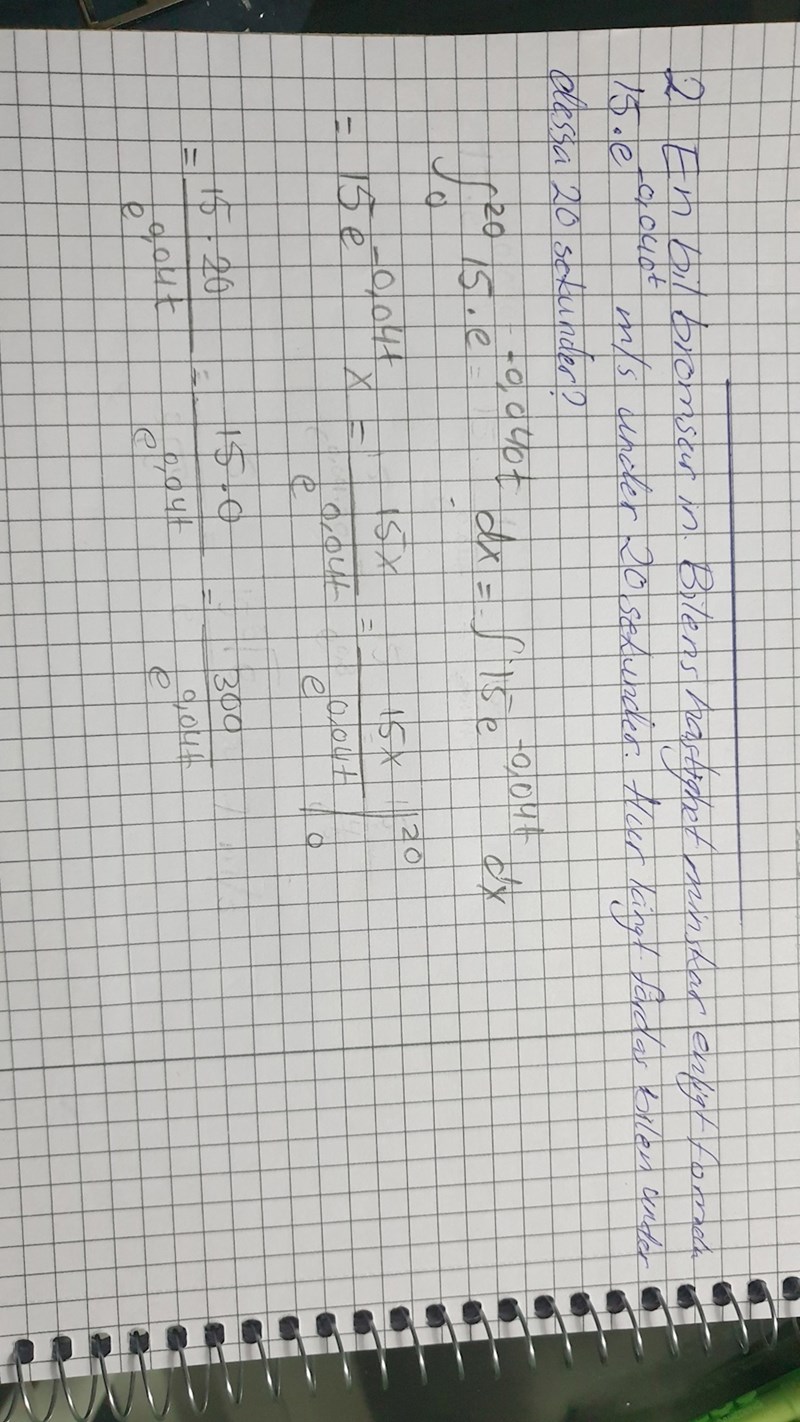 2 En bil bromsar in. Bilens hastighet minskar enligt formeln
15·e^-0,040t m/s under 20 sekunder. Hur långt färdas bilen under
dessa 20 sekunder?
∫₀²⁰ 15·e^-0,040t dx = ∫15e^-0,04t dx
= 15e^-0,04t x = 15x/e^0,04t = 15x/e^0,04t |₀²⁰
= 15·20/e^0,04t - 15·0/e^0,04t = 300/e^0,04t